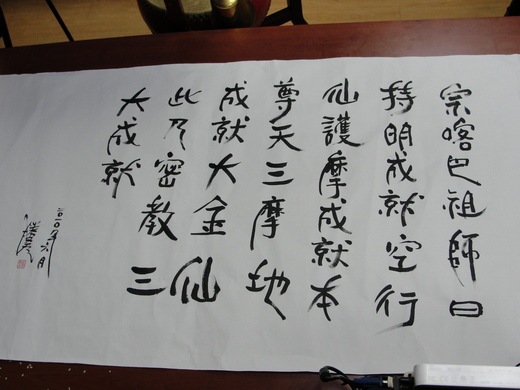 宗喀巴祖師曰
持明成就空行
仙護摩成就本
尊天三摩地
成就大金仙
此乃密教三
大成就
二〇一〇年六月